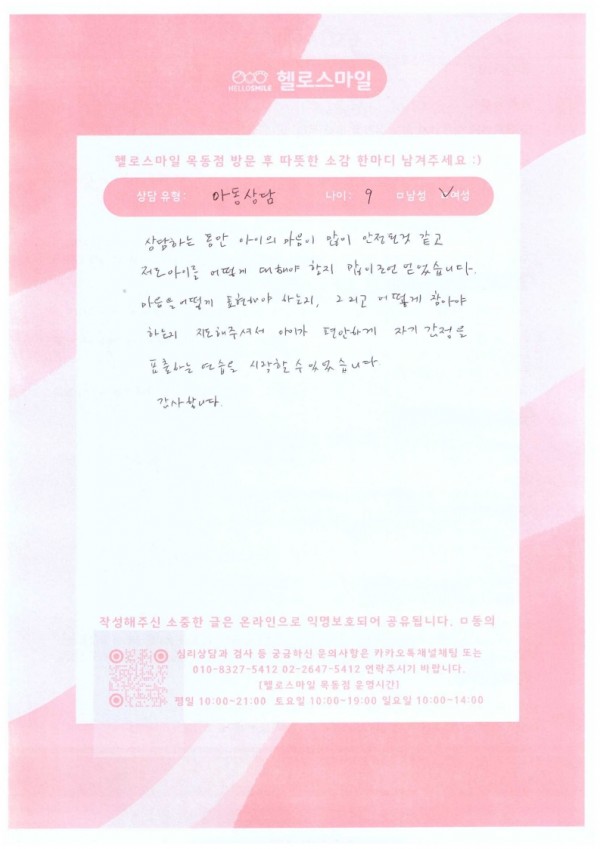 HELLOSMILE 헬로스마일
헬로스마일 목동점 방문 후 따뜻한 소감 한마디 남겨주세요 :)
상담 유형: 아동상담 나이: 9 ㅁ남성 ✓여성
상담하는 동안 아이의 마음이 많이 안정된것 같고
저도 아이를 어떻게 대해야 할지 많이 조언 얻었습니다.
마음을 어떻게 표현해야 하는지, 그리고 어떻게 참아야
하는지 지도해주셔서 아이가 편안하게 자기 감정을
표출하는 연습을 시작할 수 있었습니다.
감사합니다.
작성해주신 소중한 글은 온라인으로 익명보호되어 공유됩니다. ㅁ동의
심리상담과 검사 등 궁금하신 문의사항은 카카오톡채널채팅 또는
010-8327-5412 02-2647-5412 연락주시기 바랍니다.
[헬로스마일 목동점 운영시간]
평일 10:00~21:00 토요일 10:00~19:00 일요일 10:00~14:00